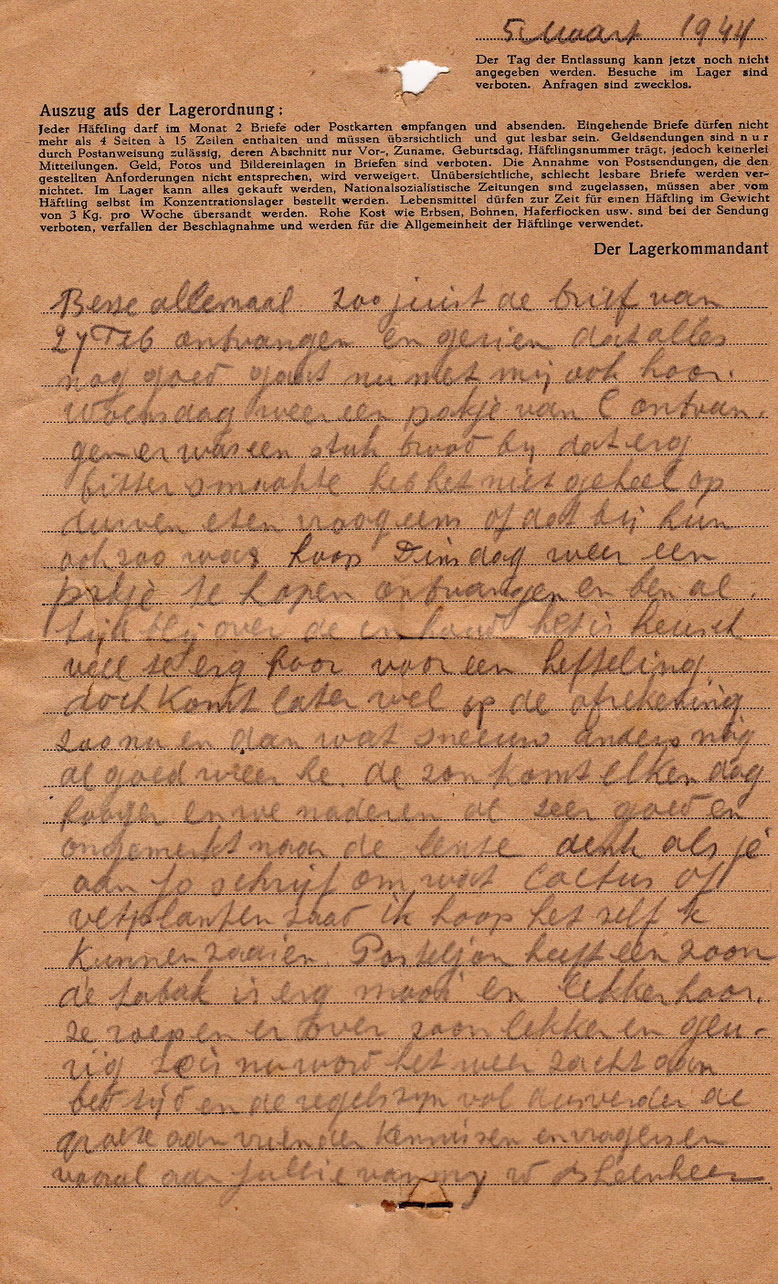 5 Maart 1944
Der Tag der Entlassung kann jetzt noch nicht
angegeben werden. Besuche im Lager sind
verboten. Anfragen sind zwecklos.
Auszug aus der Lagerordnung:
Jeder Häftling darf im Monat 2 Briefe oder Postkarten empfangen und absenden. Eingehende Briefe dürfen nicht
mehr als 4 Seiten à 15 Zeilen enthalten und müssen übersichtlich und gut lesbar sein. Geldsendungen sind nur
durch Postanweisung zulässig, deren Abschnitt nur Vor-, Zuname, Geburtsdag, Häftlingsnummer trägt, jedoch keinerlei
Mitteilungen. Geld, Fotos und Bildereinlagen in Briefen sind verboten. Die Annahme von Postsendungen, die den
gestellten Anforderungen nicht entsprechen, wird verweigert. Unübersichtliche, schlecht lesbare Briefe werden ver-
nichtet. Im Lager kann alles gekauft werden, Nationalsozialistische Zeitungen sind zugelassen, müssen aber vom
Häftling selbst im Konzentrationslager bestellt werden. Lebensmittel dürfen zur Zeit für einen Häftling im Gewicht
von 3 Kg. pro Woche übersandt werden. Rohe Kost wie Erbsen, Bohnen, Haferflocken usw. sind bei der Sendung
verboten, verfallen der Beschlagnahme und werden für die Allgemeinheit der Häftlinge verwendet.
Der Lagerkommandant
Beste allemaal zoo juist de brief van
27 Feb ontvangen en gezien dat alles
nog goed gaat nu met mij ook hoor.
Woensdag weer een pakje van C ontvan-
gen er was een stuk brood bij dat erg
bitter smaakte heb het niet geheel op
durven eten vraag eens of dat bij hun
ook zoo was hoop Dinsdag weer een
pakje te hopen ontvangen en ben al-
tijd blij over de inhoud het is heusch
veel te erg hoor voor een hefteling
doch komt later wel op de afrekening
zoo nu en dan wat sneeuw anders nog
al goed weer he. de zon komt elken dag
hooger en we naderen al zeer goed en
ongemerkt naar de lente denk als je
aan Jo schrijf om wat Cactus of
vetplanten zaad ik hoop het zelf te
kunnen zaaien. heeft een zoon
de tabak is erg mooi en lekker hoor.
ze roepen er over zoon lekker en geu-
rig nu word het weer zacht aan
bed tijd en de regels zijn vol dus verder de
groete aan vrienden kennissen en vragers en
vooral aan jullie van mij